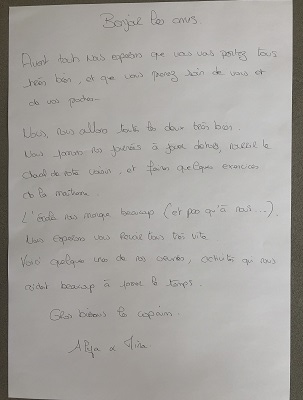 Bonjour les amis.
Avant tout nous espérons que vous vous portez tous
très bien, et que vous prenez soin de vous et
de vos proches.
Nous, nous allons toute les deux très bien.
Nous passons nos journées à jouer dehors,
de notre, et faire quelques exercices
de la maitresse.
L'école nous manque beaucoup (et pas qu'à nous...).
Nous espérons vous revoir tous très vite.
Voici quelques unes de nos oeuvres, activités qui nous
aident beaucoup à passer le temps.
Gros bisous les copains.